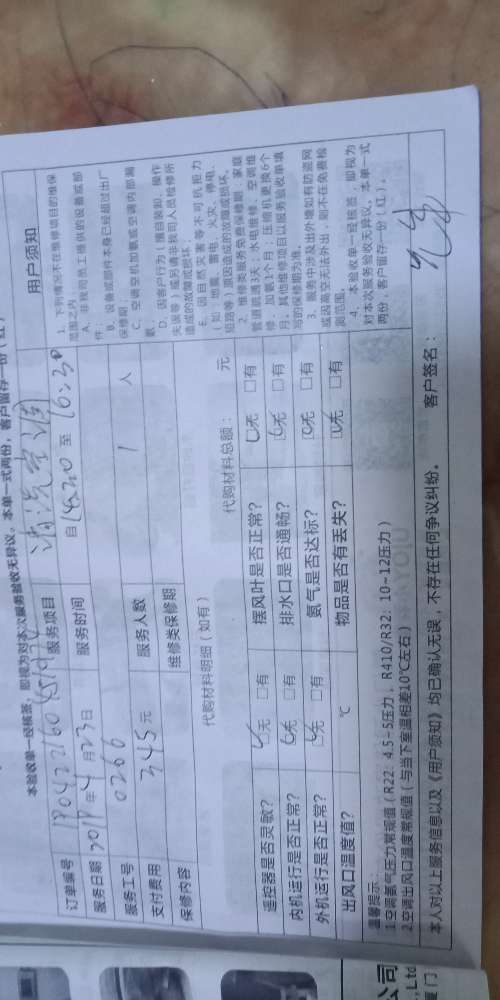 本验收单一经核签，即视为对本次服务验收无异议，本单一式两份，客户留存一份（红）
订单编号
服务项目 清洗空调
服务日期 2019年4月23日
服务时间 自14:20至16:30
服务工号 0266
服务人数 1 人
支付费用 345元
维修类保修期
保修内容
代购材料明细（如有）
代购材料总额： 元
遥控器是否灵敏？ □无 □有
摆风叶是否正常？ □无 □有
内机运行是否正常？ □无 □有
排水口是否通畅？ □无 □有
外机运行是否正常？ □无 □有
氨气是否达标？ □无 □有
出风口温度值？ ℃
物品是否有丢失？ □无 □有
用户须知
1、下列情况不在维修项目的维保
范围之内
A、非我司员工提供的设备或部
件；
B、设备或部件本身已经超过出厂
保修期；
C、空调空机加氨或空调内部漏
氨；
D、因客户行为（擅自装卸、操作
失误等）或另请非我司人员检修所
造成的故障或损坏；
E、因自然灾害等不可抗拒力
（如：地震、雷电、火灾、停电、
短路等）原因造成的故障或损坏。
2、维修类服务免费保修期：家庭
管道疏通3天；水电维修、空调维
修、加氨1个月；压缩机更换6个
月。其他维修项目以服务验收单填
写的保修期为准。
3、服务中涉及出外墙如有防盗网
或因高空无法外出，则不在免费检
测范围。
4、本验收单一经核签，即视为
对本次服务验收无异议。本单一式
两份，客户留存一份（红）。
温馨提示：
1.空调氨气压力常规值（R22：4.5-5压力，R410/R32：10-12压力）
2.空调出风口温度常规值（与当下室温相差10℃左右）
本人对以上服务信息以及《用户须知》均已确认无误，不存在任何争议纠纷。 客户签名：
公司
,Ltd
厦门